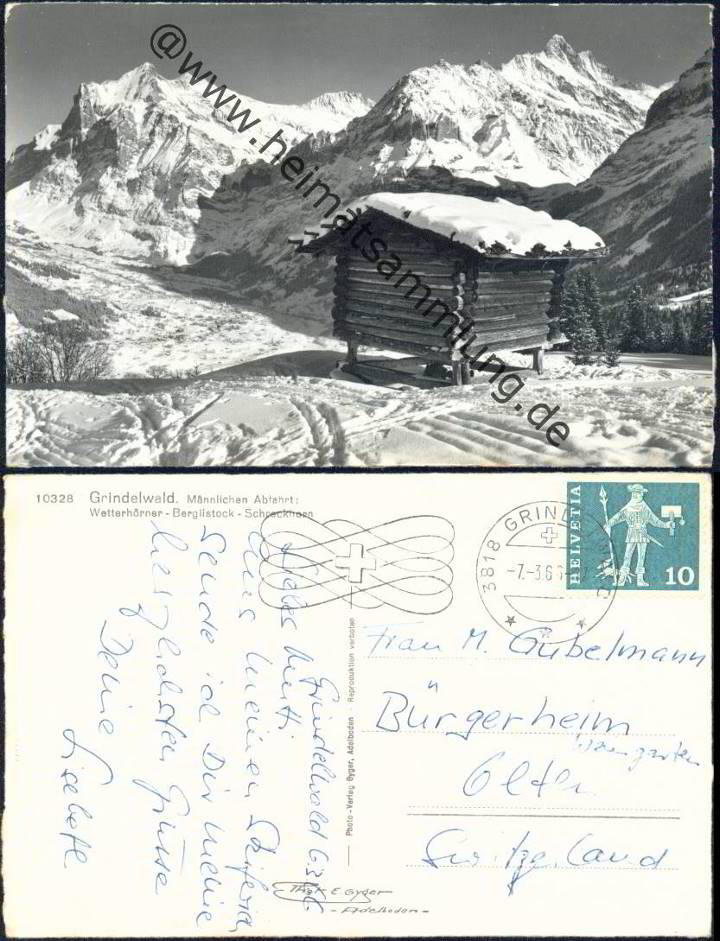 @www.heimatsammlung.de
10328 Grindelwald. Männlichen Abfahrt:
Wetterhörner - Berglistock - Schreckhorn
3818 GRINDELWALD
-7.-3.6
HELVETIA
10
Grindelwald 6.3.
Liebes Mutti
Aus meinen Skiferien
sende ich Dir meine
herzlichsten Grüsse
Deine
Liselott
Photo-Verlag Gyger, Adelboden · Reproduktion verboten
Frau M. Gübelmann
Bürgerheim
Olten
Switzerland
Phot. E Gyger
- Adelboden -